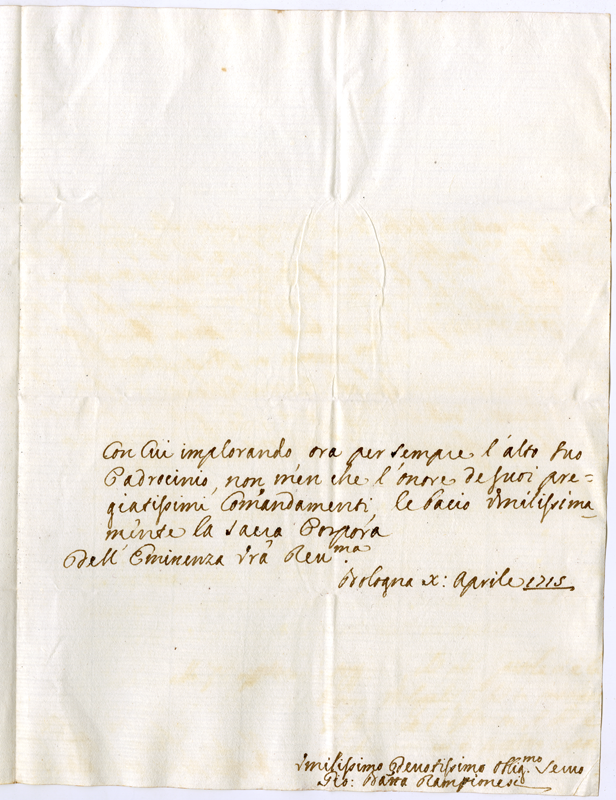 Con cui implorando ora per sempre l'alto suo
Padrocinio, non men che l'onore de suoi pre=
giatissimi Comandamenti, le bacio Umilissima_
mente la Sacra Porpora
Dell'Eminenza Vrā Reu.ma
Bologna X: Aprile 1715
Umilissimo Devotissimo Oblig.mo Seruo
Gio: Batta Rampionesi